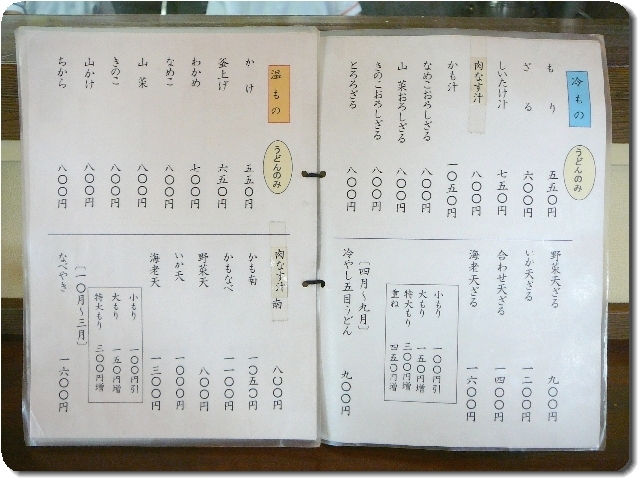 冷もの
うどんのみ
もり 五五〇円
ざる 六〇〇円
しいたけ汁 七五〇円
肉なす汁 八〇〇円
かも汁 一〇五〇円
なめこおろしざる 八〇〇円
山菜おろしざる 八〇〇円
きのこおろしざる 八〇〇円
とろろざる 八〇〇円
野菜天ざる 九〇〇円
いか天ざる 一二〇〇円
合わせ天ざる 一四〇〇円
海老天ざる 一六〇〇円
小もり 一〇〇円引
大もり 一五〇円増
特大もり 三〇〇円増
重ね 四五〇円増
〔四月〜九月〕
冷やし五目うどん 九〇〇円
温もの
うどんのみ
かけ 五五〇円
釜上げ 六五〇円
わかめ 七〇〇円
なめこ 八〇〇円
山菜 八〇〇円
きのこ 八〇〇円
山かけ 八〇〇円
ちから 八〇〇円
肉なす南 八〇〇円
かも南 一〇五〇円
かもなべ 一一〇〇円
野菜天 八〇〇円
いか天 一〇〇〇円
海老天 一三〇〇円
小もり 一〇〇円引
大もり 一五〇円増
特大もり 三〇〇円増
〔一〇月〜三月〕
なべやき 一六〇〇円